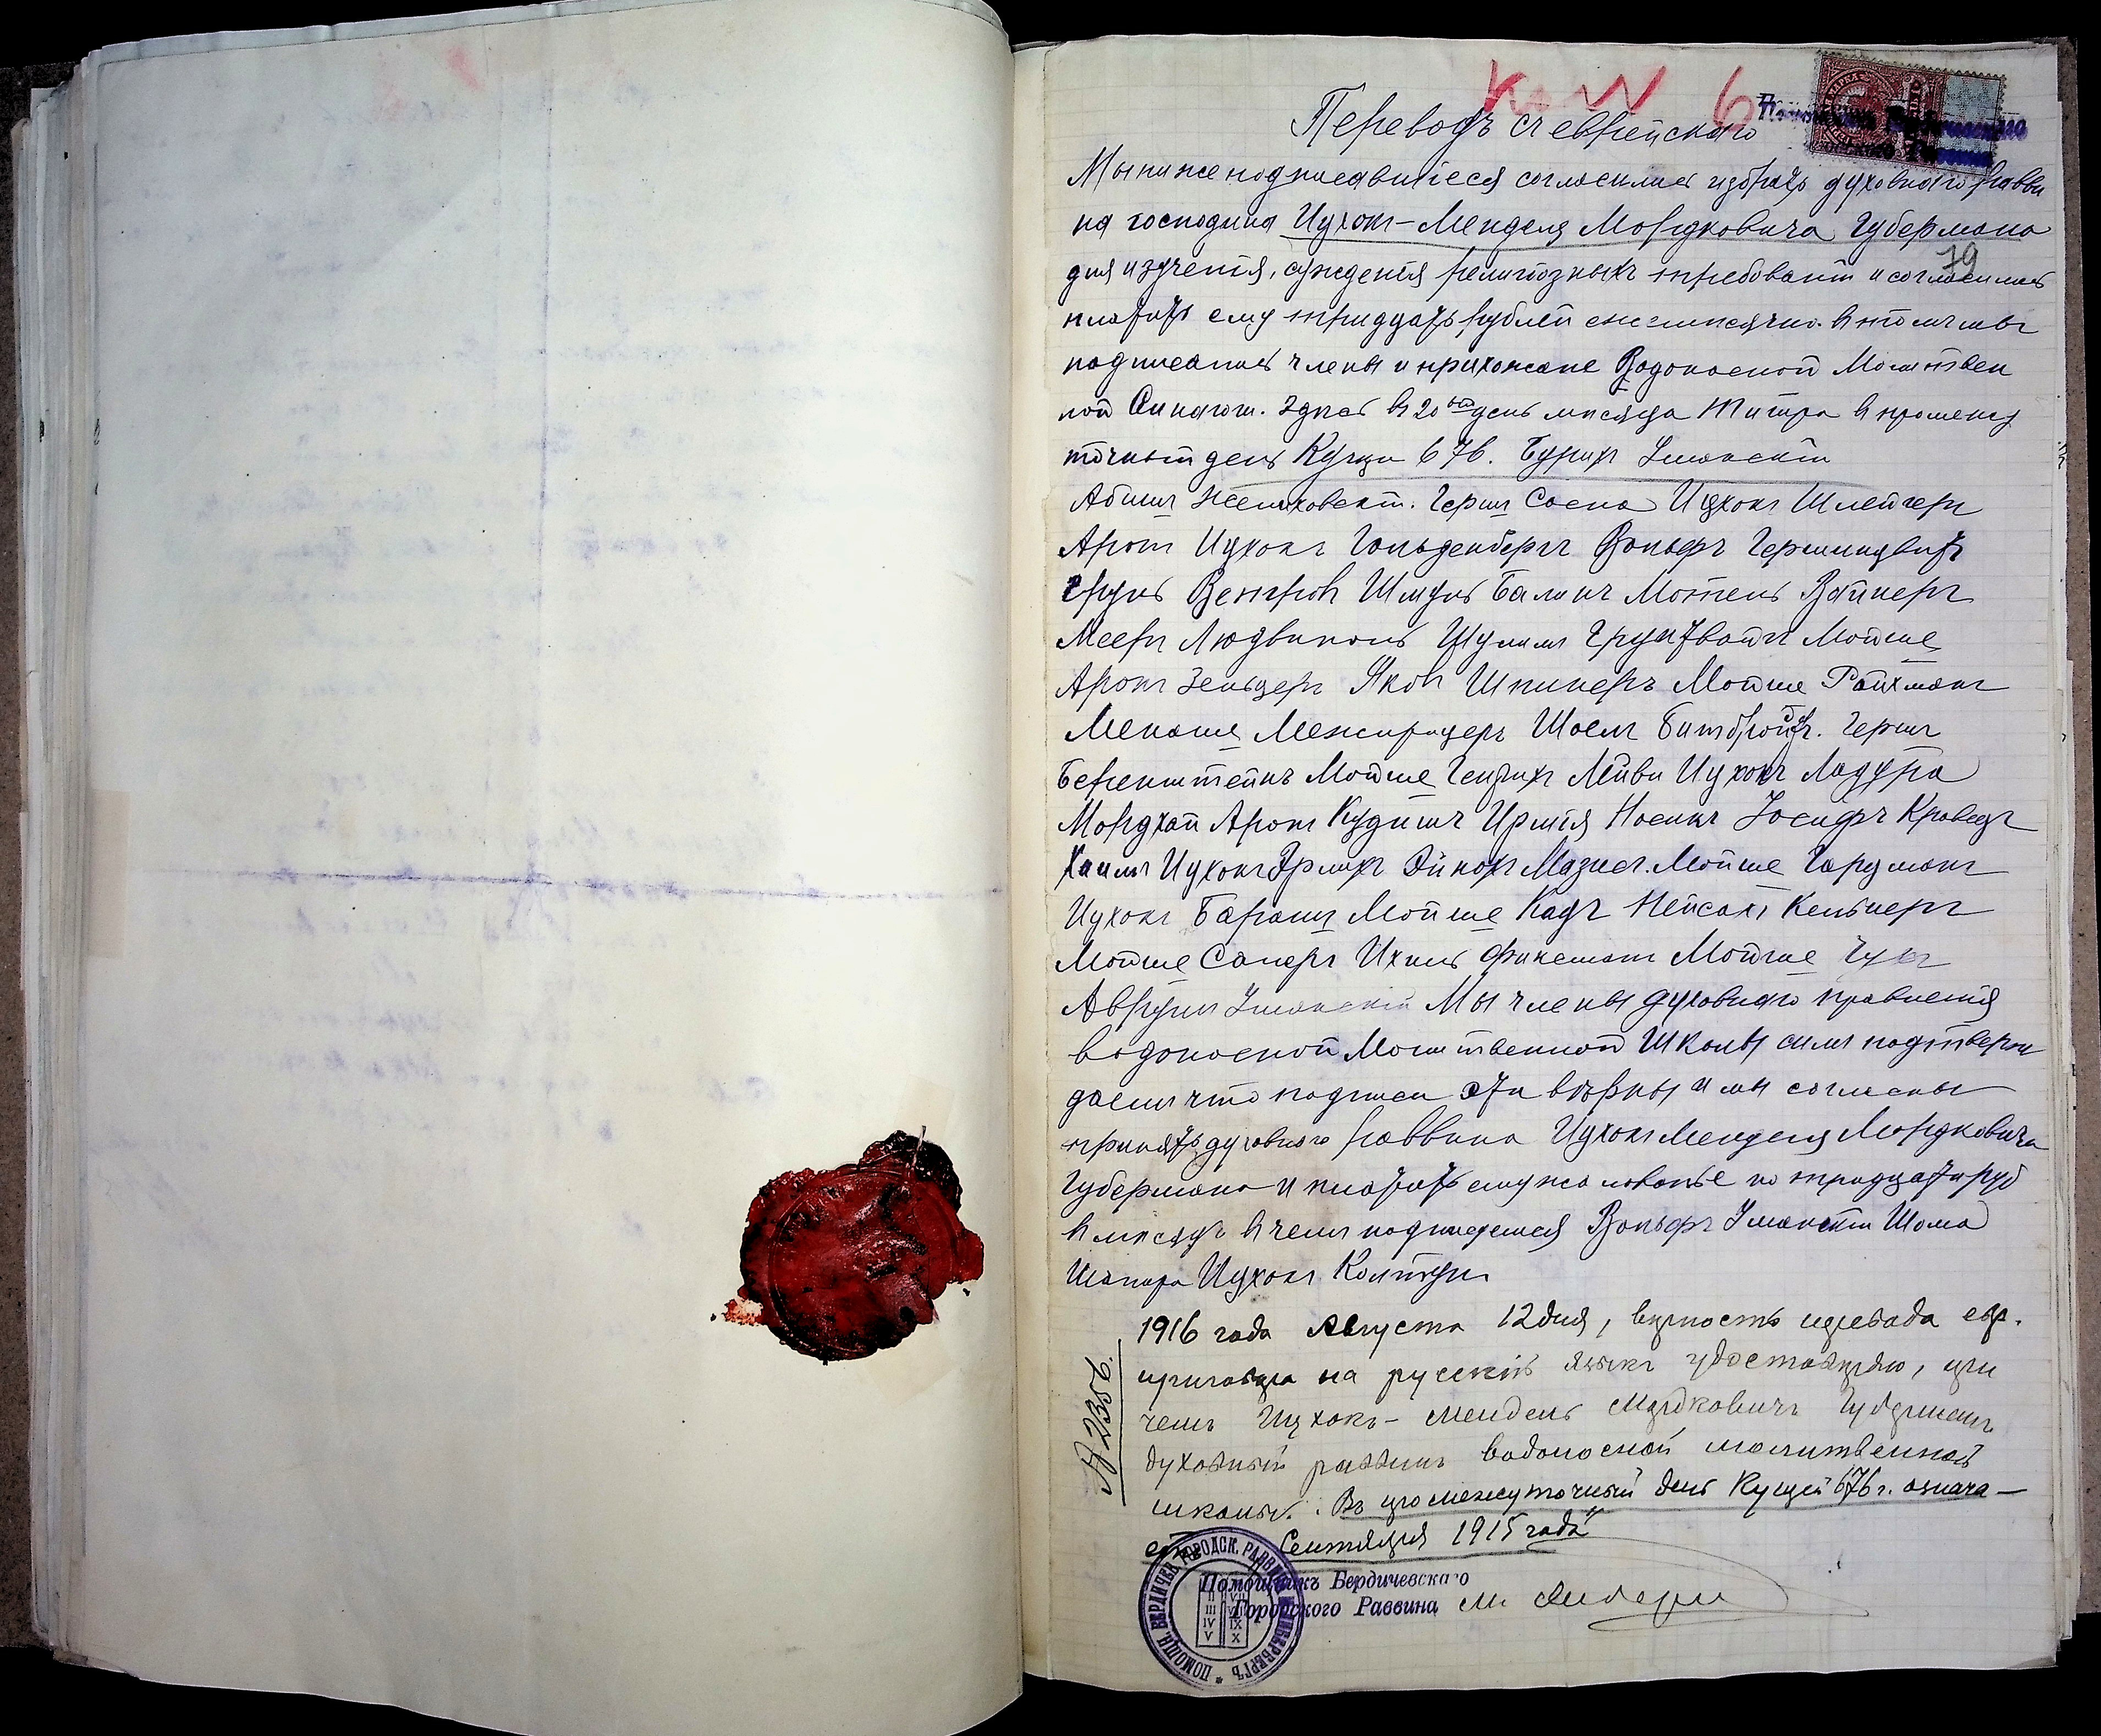 6
Переводъ съ еврейскаго
Мы нижеподписавшіеся согласились избрать духовного равви
на господина Ицхокъ-Менделя Мордковича Губермана
79
для изученія, сужденія религіозныхъ требованій и согласились
платить ему тридцать рублей ежемѣсячно. въ чемъ мы
подписались члены и прихожане Водоносной Молитвен
ной Синагоги. Здѣсь въ 20ый день мѣсяца Тишра въ промежу
точный день Кущи 676. Бурихъ Уманскій
Абишъ Желиховскій. Гершъ Сосна Ицхокъ Шлейгеръ
Аронъ Ицхокъ Гольденбергъ Вольфъ
Сруль Венгровъ Шмуль Балинъ Мотель Вайнеръ
Мееръ Людвиполь Шулимъ Мойше
Аронъ Зельцеръ Яковъ Шпинеръ Мойше Райхманъ
Менаше Межирицеръ Шоелъ Гершъ
Беренштейнъ Мойше Лейви Ицхокъ Ладура
Мордхай Аронъ Кудишъ Ирмія Носикъ Іосифъ Кравецъ
Хаимъ Ицхокъ Эрлихъ Эйнохъ Мазисъ. Мойше Гарцманъ
Ицхокъ Барашъ Мойше Кацъ Пейсахъ Кельнеръ
Мойше Саперъ Ихиль Мойше
Аврумъ Уманскій Мы члены духовнаго правленія
водоносной Молитвенной Школы симъ подтверж
даемъ что подписи эти вѣрны и мы согласны
принять духовного раввина Ицхокъ Менделя Мордковича
Губермана и платить ему жалованье по тридцати руб
въ мѣсяцъ въ чемъ подпишемся Вольфъ Уманскій Шома
Шапира Ицхокъ Колтунъ
1916 года Августа 12 дня, вѣрность перевода евр.
приговора на русскій языкъ удостовѣряю, при
чемъ Ицхокъ-Мендель Мордковичъ Губерманъ
духовный раввинъ водоносной молитвенной
школы. Въ промежуточный день Кущей 676 г. означа-
етъ Сентября 1915 года
№ 2356.
Помощникъ Бердичевскаго
Городского Раввина
ПОМОЩН. БЕРДИЧЕВ. ГОРОДСК. РАВВИНА